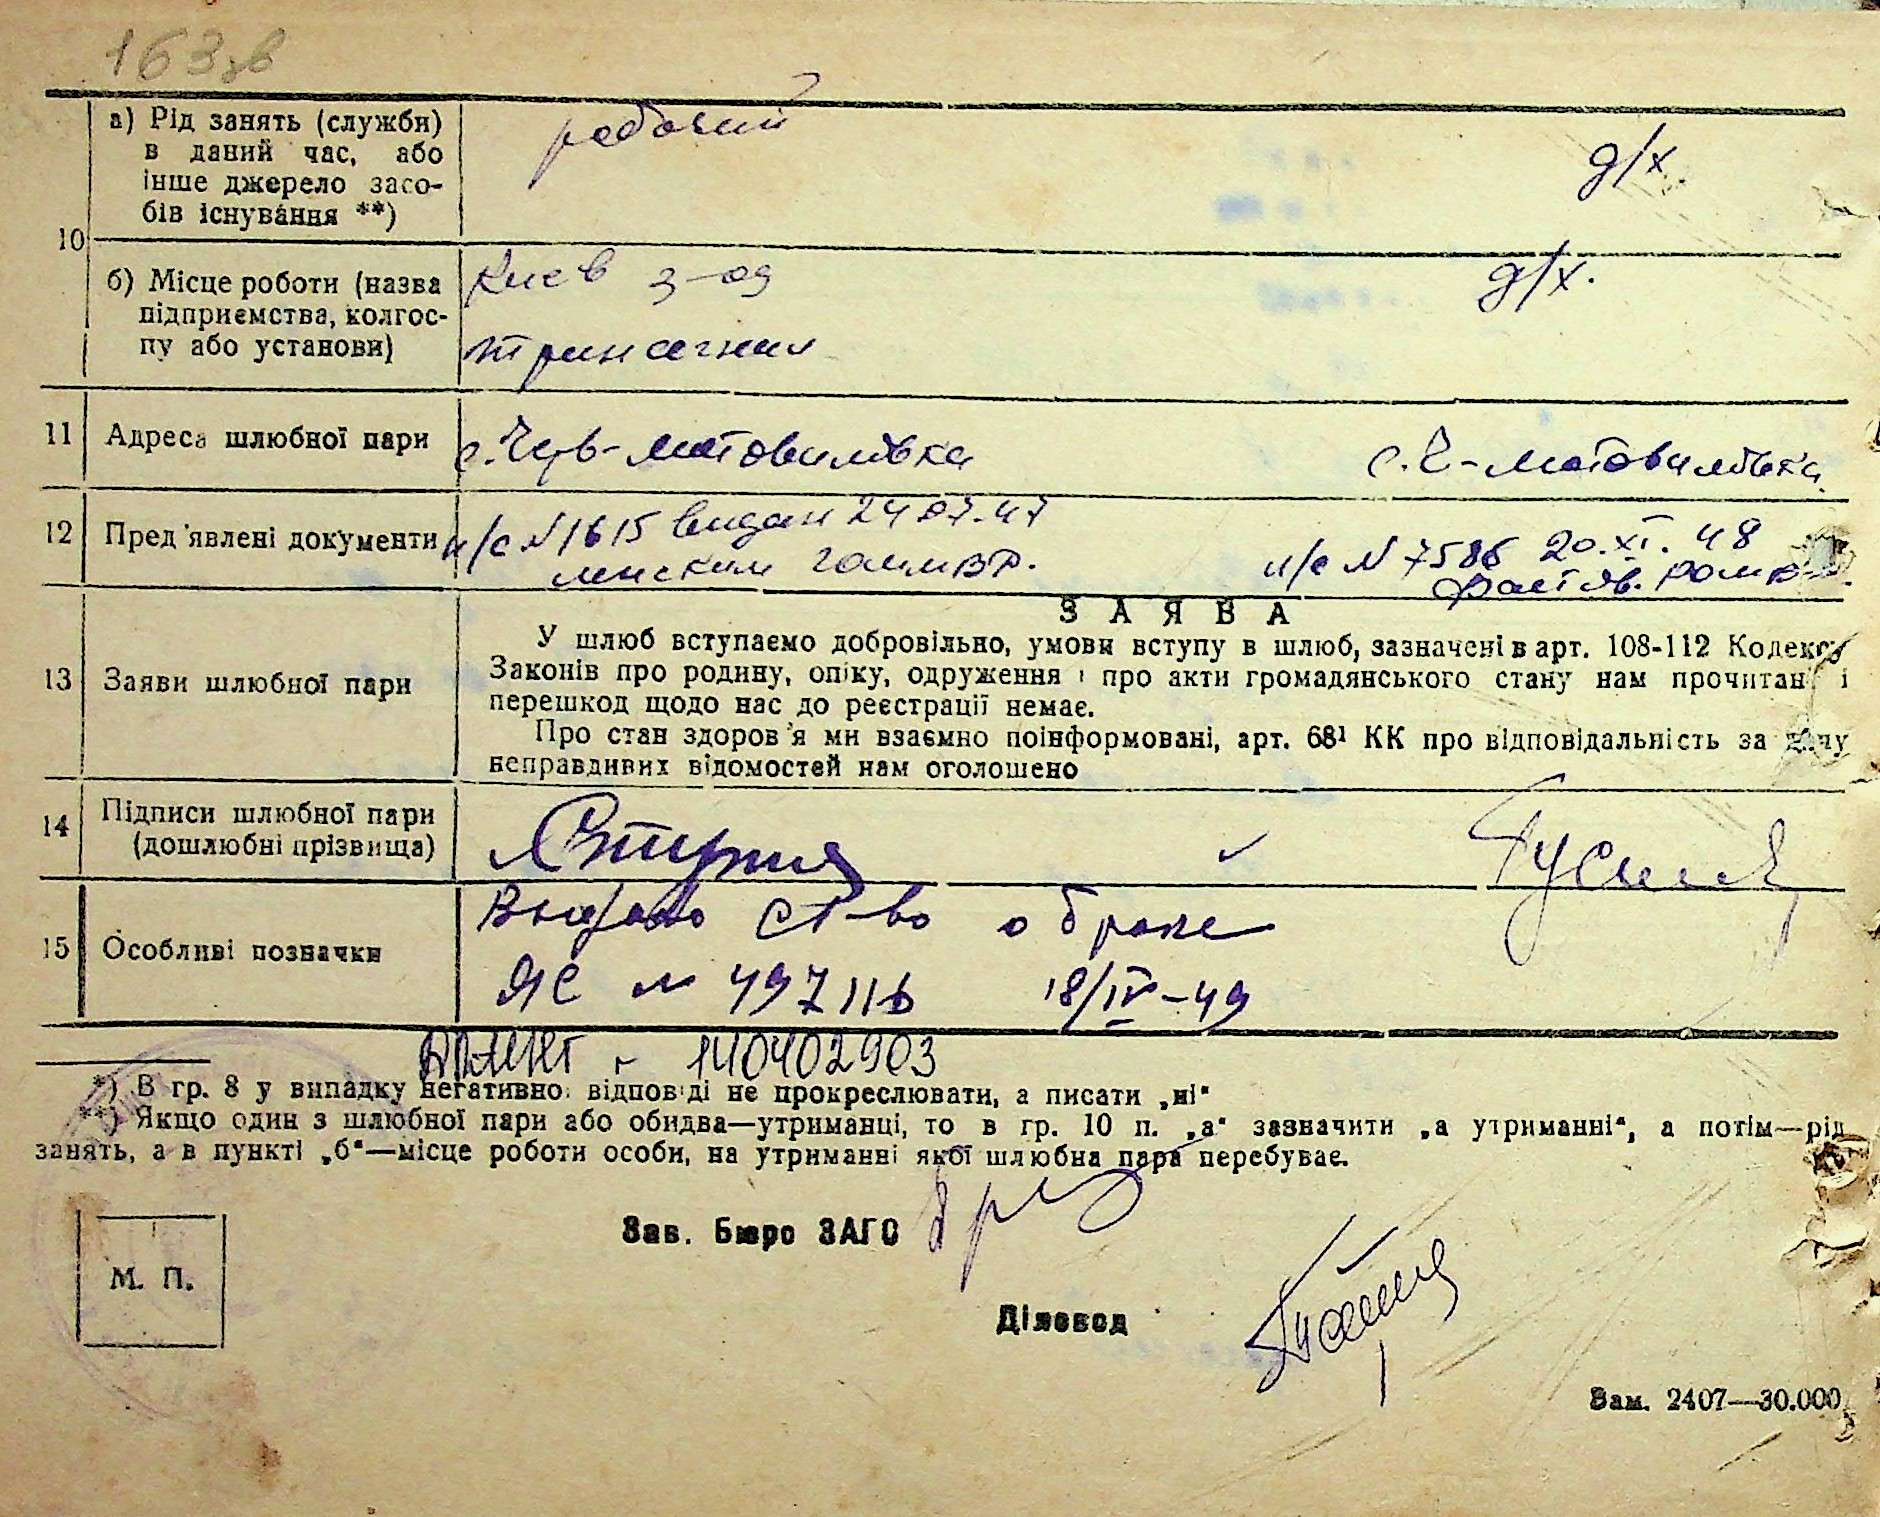 163зв
10
а) Рід занять (служби)
в даний час, або
інше джерело засо-
бів існування **)
рабочий
д/х
б) Місце роботи (назва
підприємства, колгос-
пу або установи)
Киев з-од
д/х.
11 Адреса шлюбної пари
с. Черв-мотовилівка
с. Ч-мотовилівка
12 Пред'явлені документи
п/с N 1615 видан 24 07.47
п/с N 7586 20.XI.48
13 Заяви шлюбної пари
ЗАЯВА
У шлюб вступаємо добровільно, умови вступу в шлюб, зазначені в арт. 108-112 Кодексу
Законів про родину, опіку, одруження і про акти громадянського стану нам прочитані і
перешкод щодо нас до реєстрації немає.
Про стан здоров'я ми взаємно поінформовані, арт. 68¹ КК про відповідальність за дачу
неправдивих відомостей нам оголошено
14 Підписи шлюбної пари
(дошлюбні прізвища)
15 Особливі позначки
Выдано св-во о браке
ЯС N 497116 18/IV-49
140402903
*) В гр. 8 у випадку негативної відповіді не прокреслювати, а писати „ні“
**) Якщо один з шлюбної пари або обидва—утриманці, то в гр. 10 п. „а“ зазначити „а утриманні“, а потім—рід
занять, а в пункті „б“—місце роботи особи, на утриманні якої шлюбна пара перебуває.
Зав. Бюро ЗАГС
М. П.
Діловод
Зам. 2407—30.000